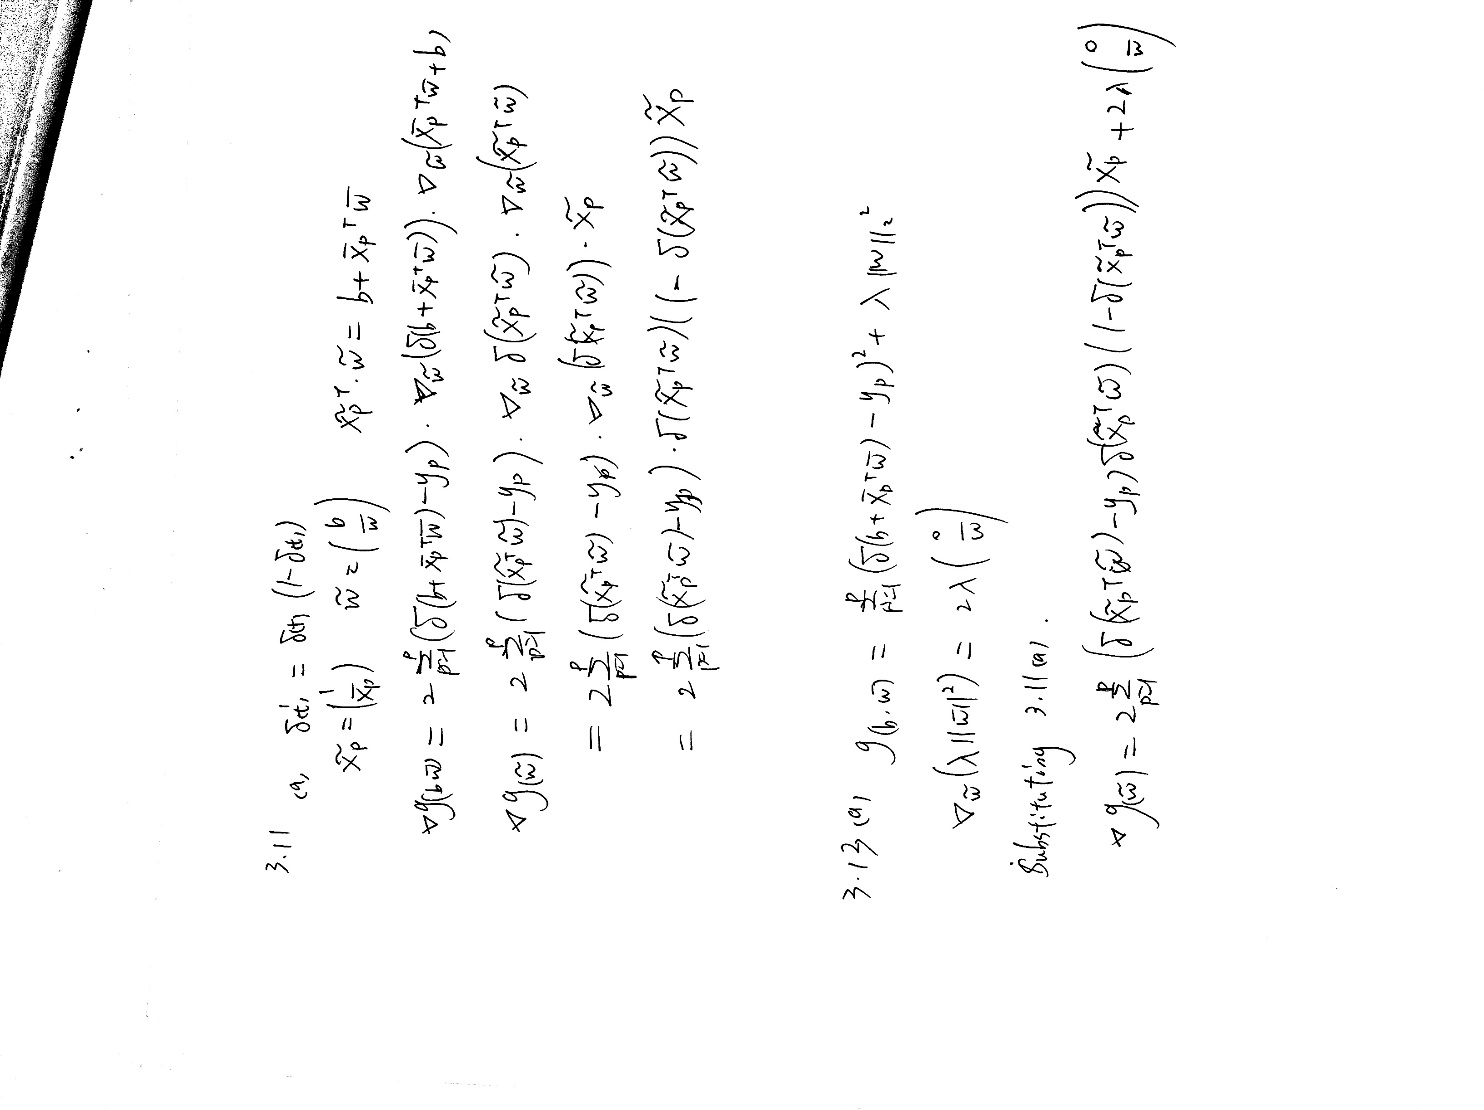 3.11
(a) δ(t)' = δ(t) (1-δ(t))
x̃ₚ = (1 x̄ₚ) w̃ = (b w̄) x̃ₚᵀ·w̃ = b + x̄ₚᵀw̄
∇g(b w̄) = 2 Σₚ₌₁ᴾ (δ(b+x̄ₚᵀw̄)-yₚ) · ∇w̃(δ(b+x̄ₚᵀw̄)) · ∇w̃(x̄ₚᵀw̄+b)
∇g(w̃) = 2 Σₚ₌₁ᴾ (δ(x̃ₚᵀw̃)-yₚ) · ∇w̃ δ(x̃ₚᵀw̃) · ∇w̃(x̃ₚᵀw̃)
= 2 Σₚ₌₁ᴾ (δ(x̃ₚᵀw̃)-yₚ) · ∇w̃(δ(x̃ₚᵀw̃)) · x̃ₚ
= 2 Σₚ₌₁ᴾ (δ(x̃ₚᵀw̃)-yₚ) · δ(x̃ₚᵀw̃)(1-δ(x̃ₚᵀw̃)) x̃ₚ
3.13 (a) g(b.w) = Σₚ₌₁ᴾ (δ(b+x̄ₚᵀw̄)-yₚ)² + λ||w||₂²
∇w̃(λ||w̄||²) = 2λ (0 w̄)
Substituting 3.11(a).
∇g(w̃) = 2 Σₚ₌₁ᴾ (δ(x̃ₚᵀw̃)-yₚ) δ(x̃ₚᵀw̃) (1-δ(x̃ₚᵀw̃)) x̃ₚ + 2λ (0 w̄)